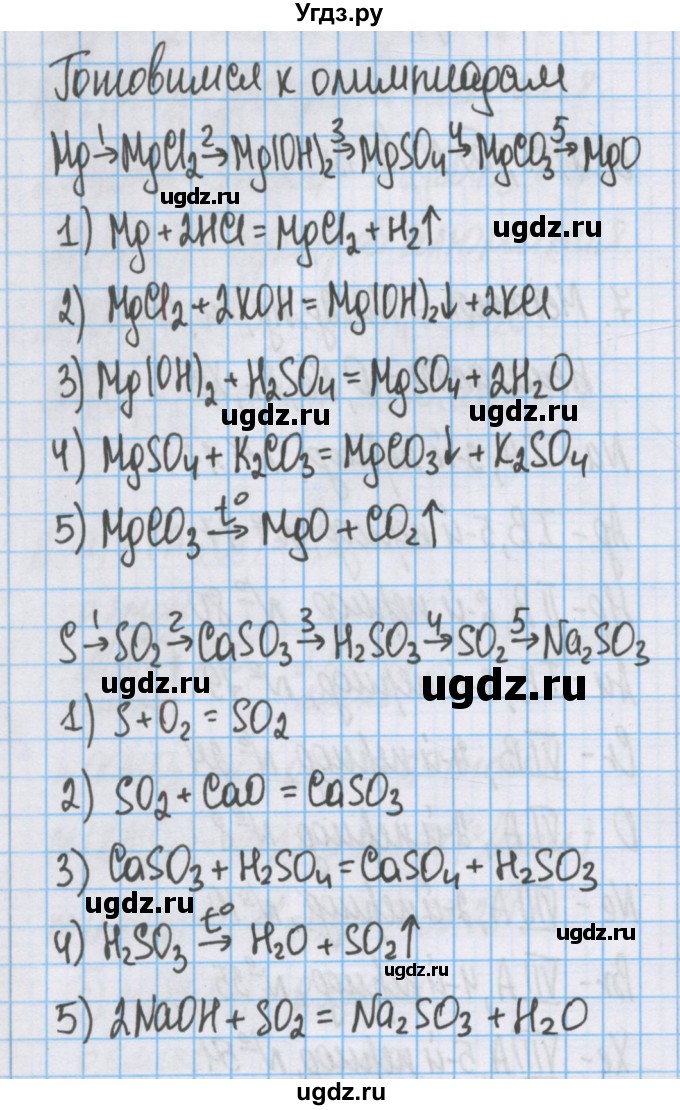 Угдз.ру
Готовимся к олимпиадам
Mg →¹ MgCl₂ →² Mg(OH)₂ →³ MgSO₄ →⁴ MgCO₃ →⁵ MgO
ugdz.ru
ugdz.ru
1) Mg + 2HCl = MgCl₂ + H₂↑
2) MgCl₂ + 2KOH = Mg(OH)₂↓ + 2KCl
3) Mg(OH)₂ + H₂SO₄ = MgSO₄ + 2H₂O
ugdz.ru
ugdz.ru
4) MgSO₄ + K₂CO₃ = MgCO₃↓ + K₂SO₄
5) MgCO₃ →t° MgO + CO₂↑
S →¹ SO₂ →² CaSO₃ →³ H₂SO₃ →⁴ SO₂ →⁵ Na₂SO₃
ugdz.ru
ugdz.ru
1) S + O₂ = SO₂
2) SO₂ + CaO = CaSO₃
3) CaSO₃ + H₂SO₄ = CaSO₄ + H₂SO₃
ugdz.ru
ugdz.ru
4) H₂SO₃ →t° H₂O + SO₂↑
ugdz.ru
5) 2NaOH + SO₂ = Na₂SO₃ + H₂O
ugdz.ru